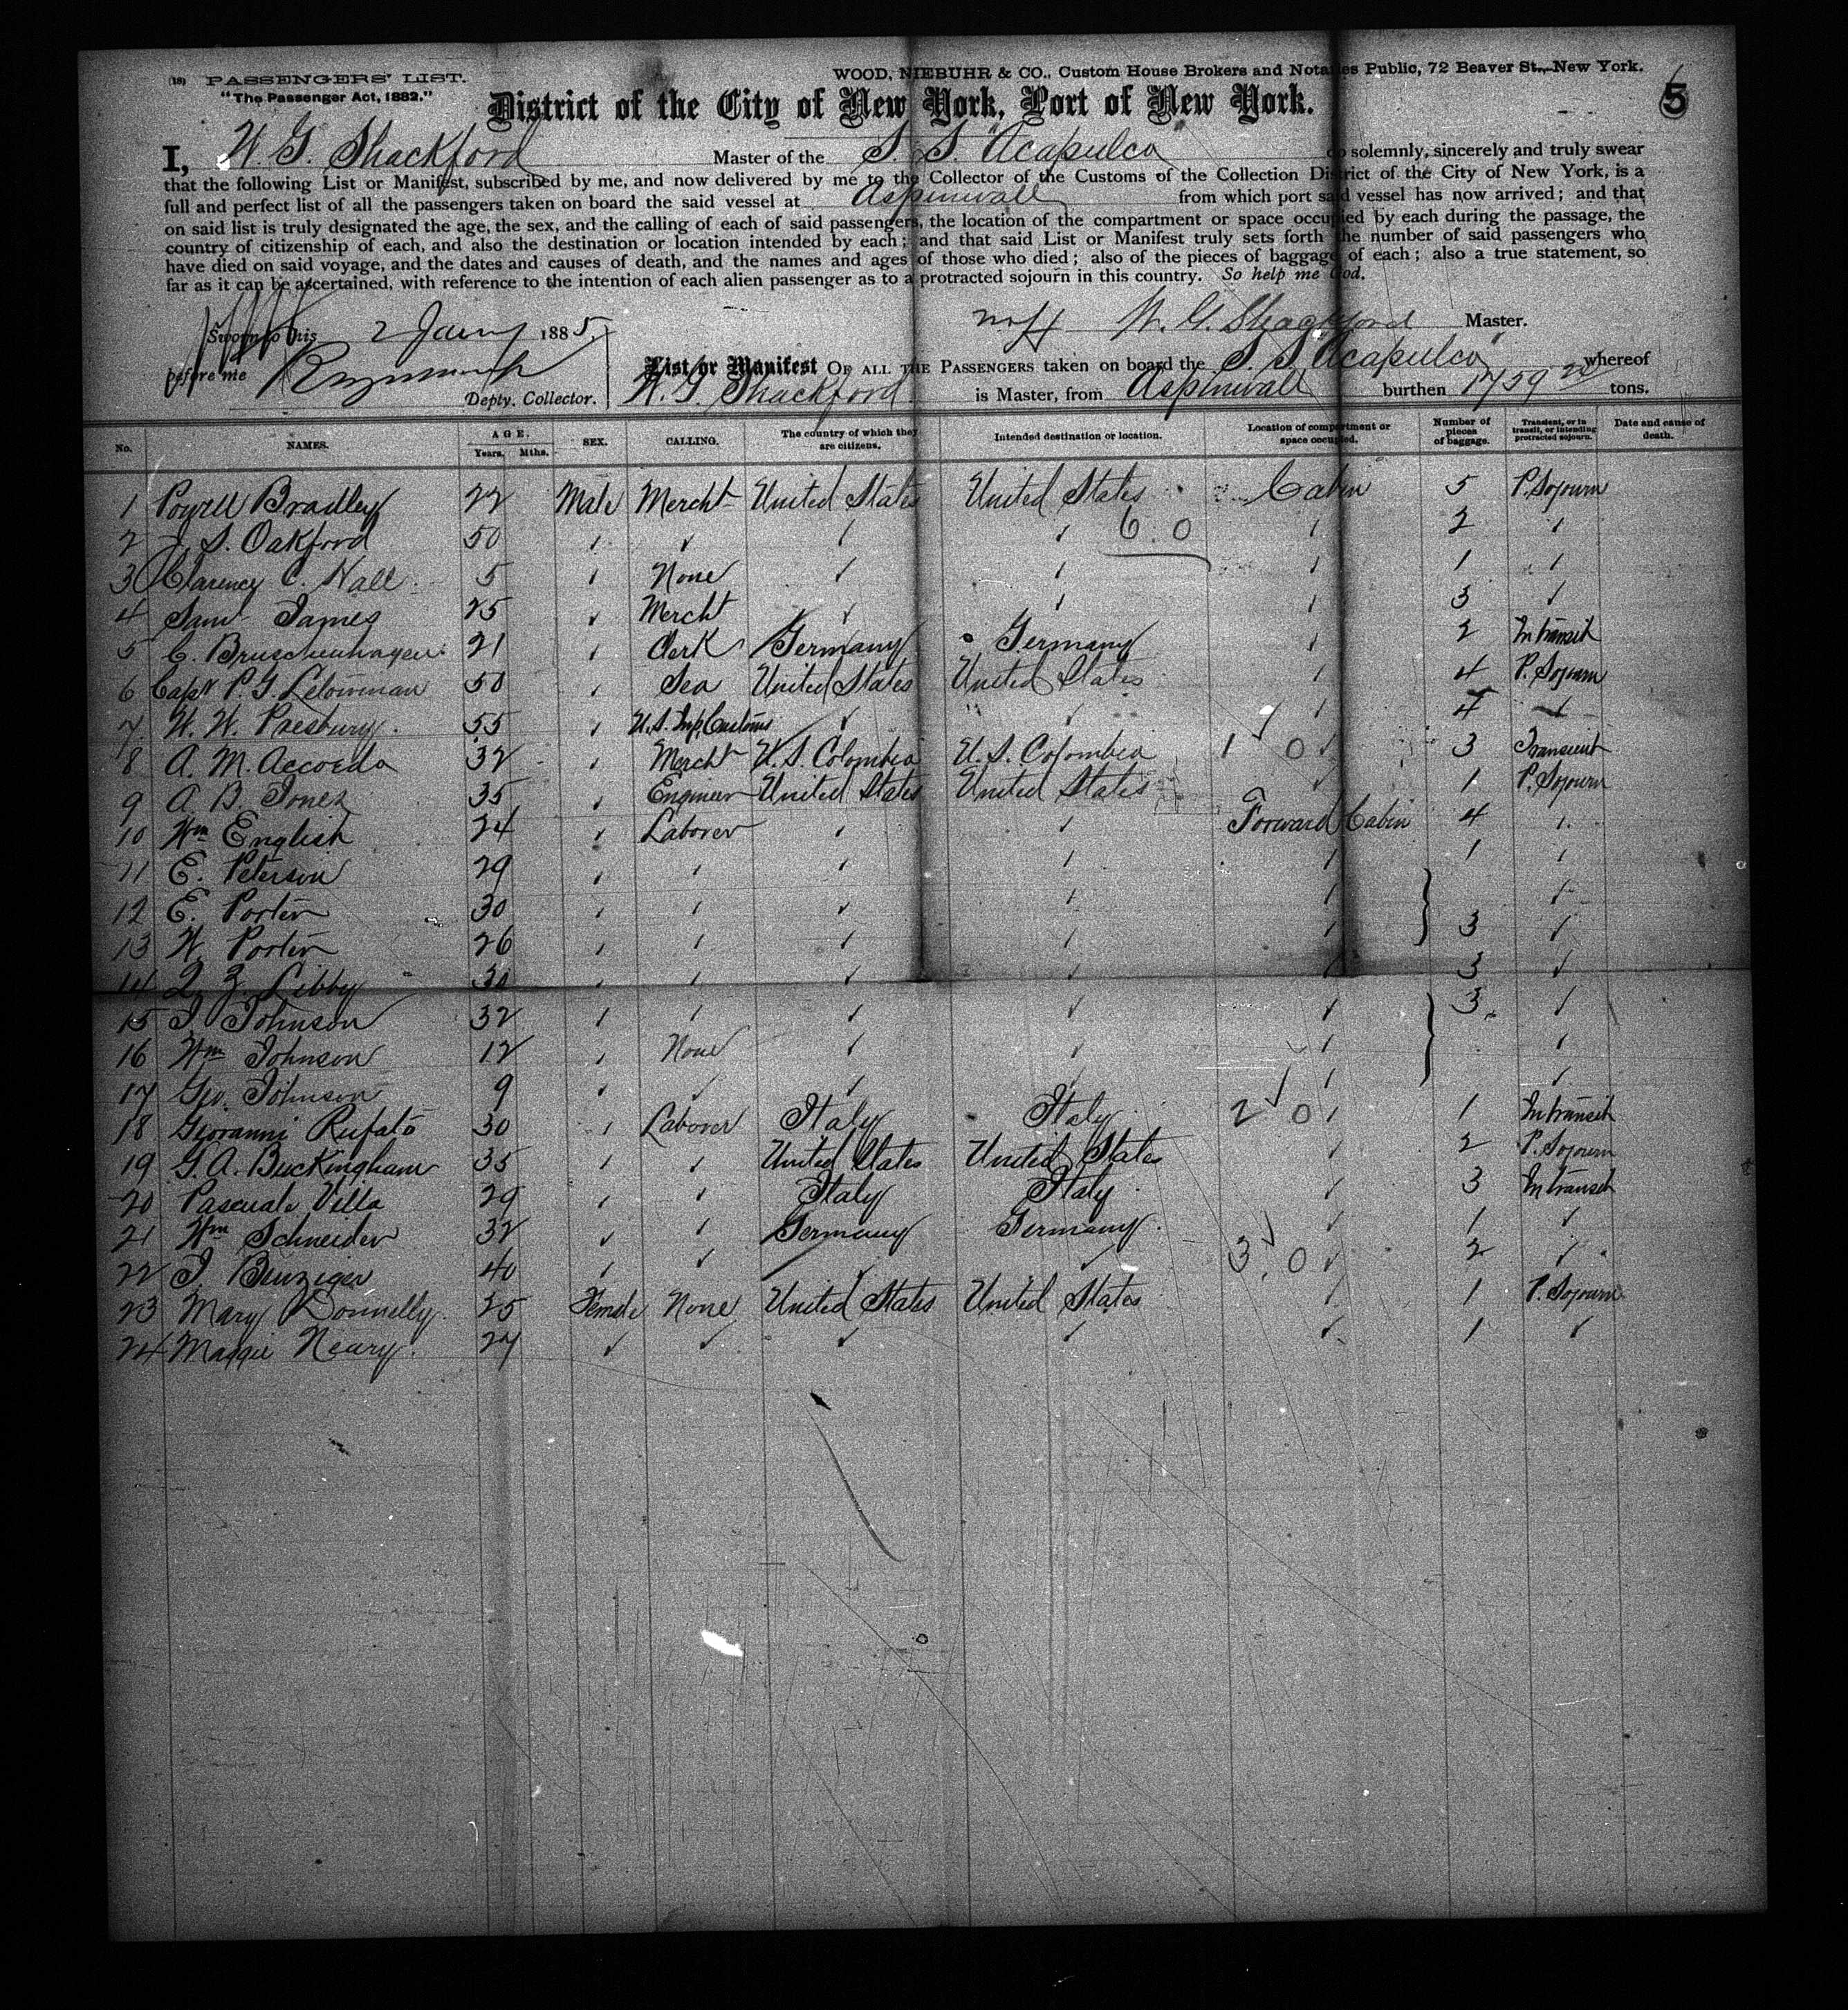 (18) PASSENGERS' LIST.
WOOD, NIEBUHR & CO., Custom House Brokers and Notaries Public, 72 Beaver St., New York.
"The Passenger Act, 1882."
District of the City of New York, Port of New York.
5
I, W. G. Shackford Master of the S. S. "Acapulco" do solemnly, sincerely and truly swear
that the following List or Manifest, subscribed by me, and now delivered by me to the Collector of the Customs of the Collection District of the City of New York, is a
full and perfect list of all the passengers taken on board the said vessel at Aspinwall from which port said vessel has now arrived; and that
on said list is truly designated the age, the sex, and the calling of each of said passengers, the location of the compartment or space occupied by each during the passage, the
country of citizenship of each, and also the destination or location intended by each; and that said List or Manifest truly sets forth the number of said passengers who
have died on said voyage, and the dates and causes of death, and the names and ages of those who died; also of the pieces of baggage of each; also a true statement, so
far as it can be ascertained, with reference to the intention of each alien passenger as to a protracted sojourn in this country. So help me God.
Sworn to this 2 Jany 1885 W. G. Shackford Master.
before me
Depty. Collector.
List or Manifest OF ALL THE PASSENGERS taken on board the S. S. "Acapulco" whereof
W. G. Shackford is Master, from Aspinwall burthen 1759 tons.
No. NAMES. AGE. Years. Mths. SEX. CALLING. The country of which they are citizens. Intended destination or location. Location of compartment or space occupied. Number of pieces of baggage. Transient, or in transit, or intending protracted sojourn. Date and cause of death.
1 Bradley 22 Male Mercht United States United States Cabin 5 P. Sojourn
2 J. S. Oakford 50 ✓ ✓ ✓ ✓ 6.0 ✓ 2 ✓
3 Clarency C. Hall 5 ✓ None ✓ ✓ ✓ 1 ✓
4 Saml James 25 ✓ Mercht ✓ ✓ ✓ 3 ✓
5 C. Bruschenhagen 21 ✓ Clerk Germany Germany ✓ 2 In transit
6 Capt P. G. 50 ✓ Sea United States United States ✓ 4 P. Sojourn
7 W. W. Presbury 55 ✓ U.S. Insp. Customs ✓ ✓ ✓ 4 ✓
8 A. M. Accoeda 32 ✓ Mercht U. S. Colombia U. S. Colombia 1 0 ✓ 3 Transient
9 A. B. Jones 35 ✓ Engineer United States United States ✓ 1 P. Sojourn
10 Wm English 24 ✓ Laborer ✓ ✓ Forward Cabin 4 ✓
11 E. Peterson 29 ✓ ✓ ✓ ✓ ✓ 1 ✓
12 E. Porter 30 ✓ ✓ ✓ ✓ ✓ ✓
13 W. Porter 26 ✓ ✓ ✓ ✓ ✓ 3 ✓
14 Libby 30 ✓ ✓ ✓ ✓ ✓ 3 ✓
15 J. Johnson 32 ✓ ✓ ✓ ✓ ✓ 3 ✓
16 Wm Johnson 12 ✓ None ✓ ✓ ✓ ✓
17 Geo. Johnson 9 ✓ ✓ ✓ ✓ ✓ ✓
18 Giovanni Rufato 30 ✓ Laborer Italy Italy 2 0 ✓ 1 In transit
19 G. A. Buckingham 35 ✓ ✓ United States United States ✓ 2 P. Sojourn
20 Pascuale Villa 29 ✓ ✓ Italy Italy ✓ 3 In transit
21 Wm Schneider 32 ✓ ✓ Germany Germany ✓ 1 ✓
22 J. Benziger 40 ✓ ✓ ✓ ✓ 3 0 ✓ 2 ✓
23 Mary Donnelly 25 Female None United States United States ✓ 1 P. Sojourn
24 Maggie Neary 27 ✓ ✓ ✓ ✓ ✓ 1 ✓